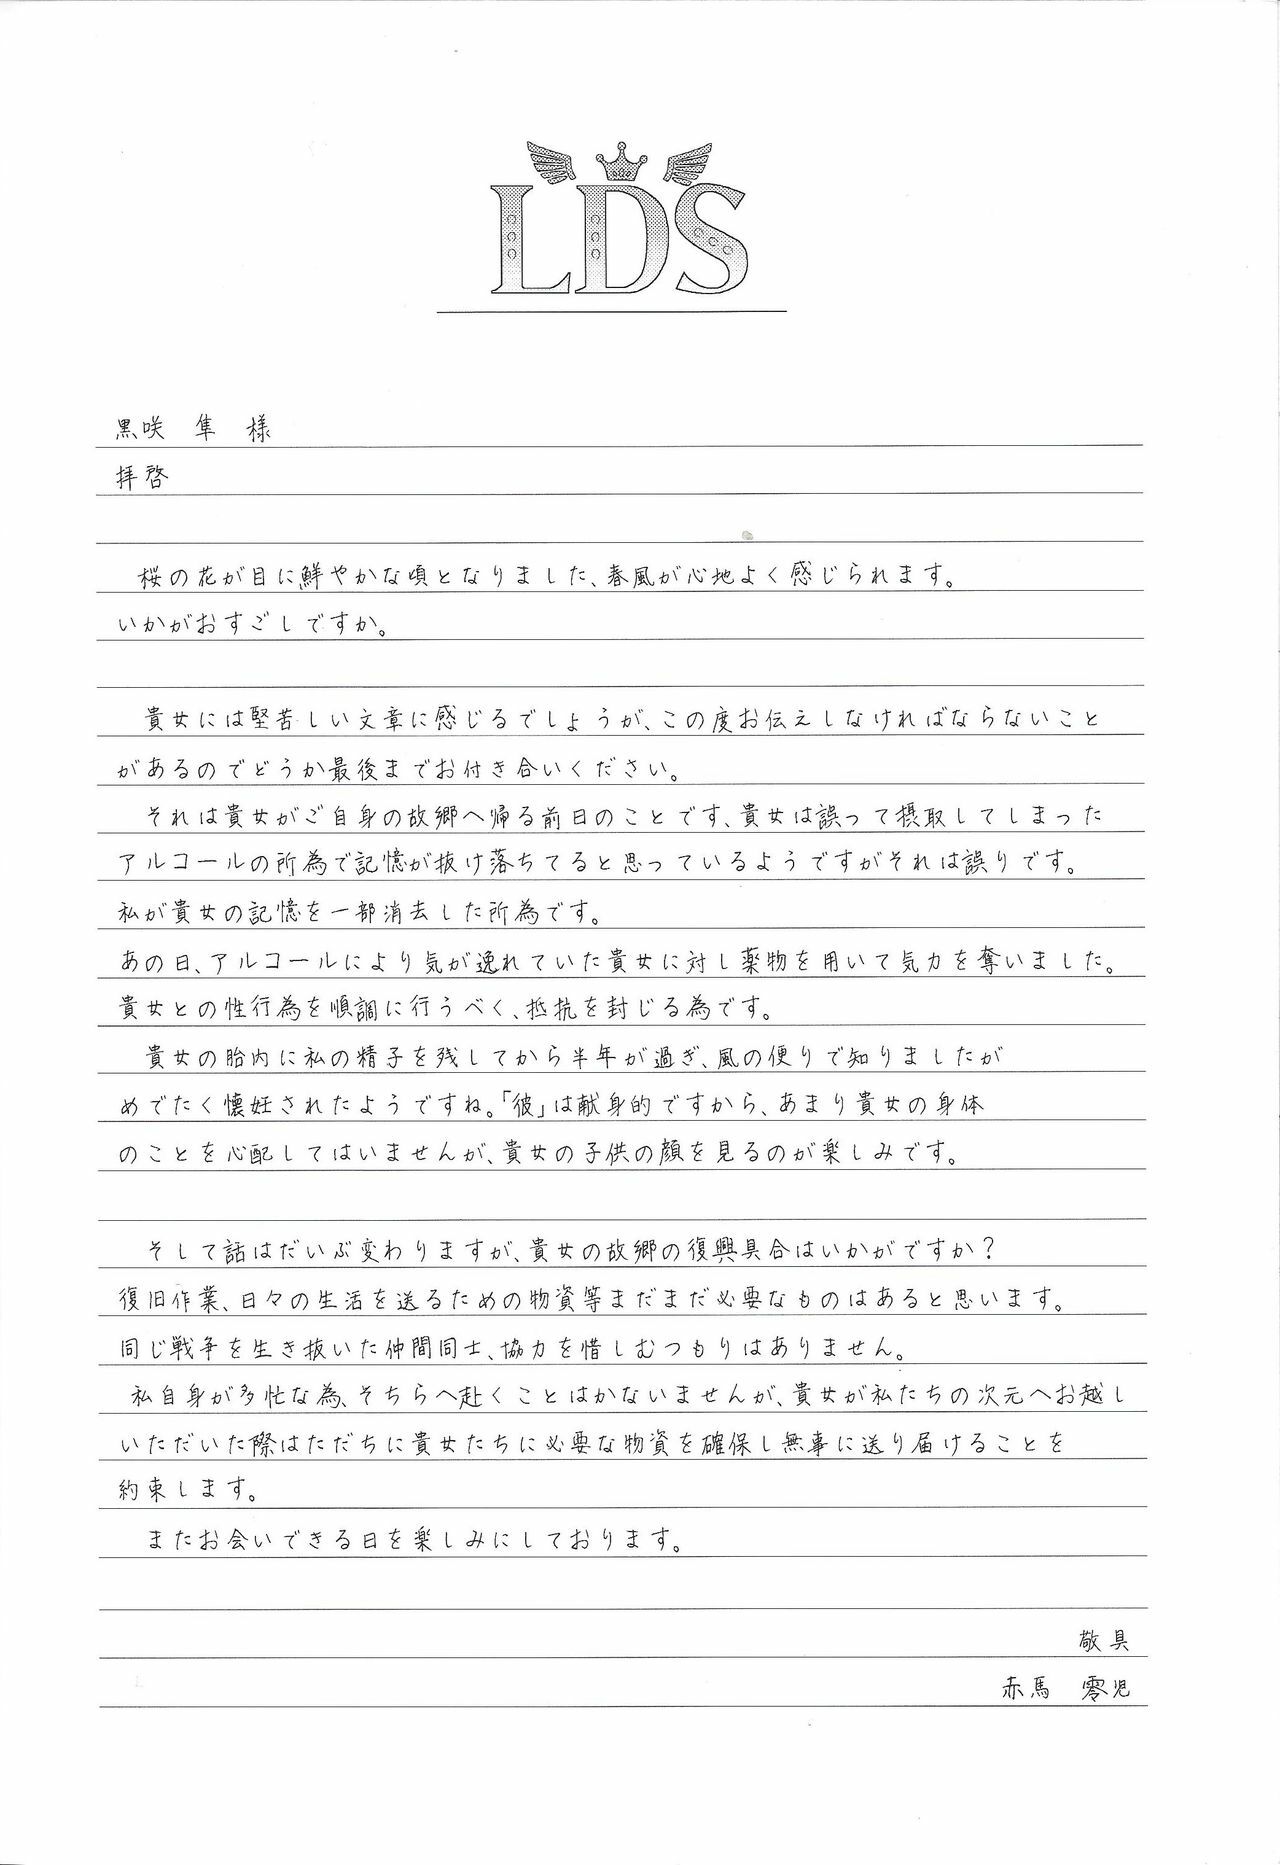 LDS
黒咲 隼 様
拝啓
桜の花が目に鮮やかな頃となりました、春風が心地よく感じられます。
いかがおすごしですか。
貴女には堅苦しい文章に感じるでしょうが、この度お伝えしなければならないこと
があるのでどうか最後までお付き合いください。
それは貴女がご自身の故郷へ帰る前日のことです、貴女は誤って摂取してしまった
アルコールの所為で記憶が抜け落ちてると思っているようですがそれは誤りです。
私が貴女の記憶を一部消去した所為です。
あの日、アルコールにより気が逸れていた貴女に対し薬物を用いて気力を奪いました。
貴女との性行為を順調に行うべく、抵抗を封じる為です。
貴女の胎内に私の精子を残してから半年が過ぎ、風の便りで知りましたが
めでたく懐妊されたようですね。「彼」は献身的ですから、あまり貴女の身体
のことを心配してはいませんが、貴女の子供の顔を見るのが楽しみです。
そして話はだいぶ変わりますが、貴女の故郷の復興具合はいかがですか？
復旧作業、日々の生活を送るための物資等まだまだ必要なものはあると思います。
同じ戦争を生き抜いた仲間同士、協力を惜しむつもりはありません。
私自身が多忙な為、そちらへ赴くことはかないませんが、貴女が私たちの次元へお越し
いただいた際はただちに貴女たちに必要な物資を確保し無事に送り届けることを
約束します。
またお会いできる日を楽しみにしております。
敬具
赤馬 零児